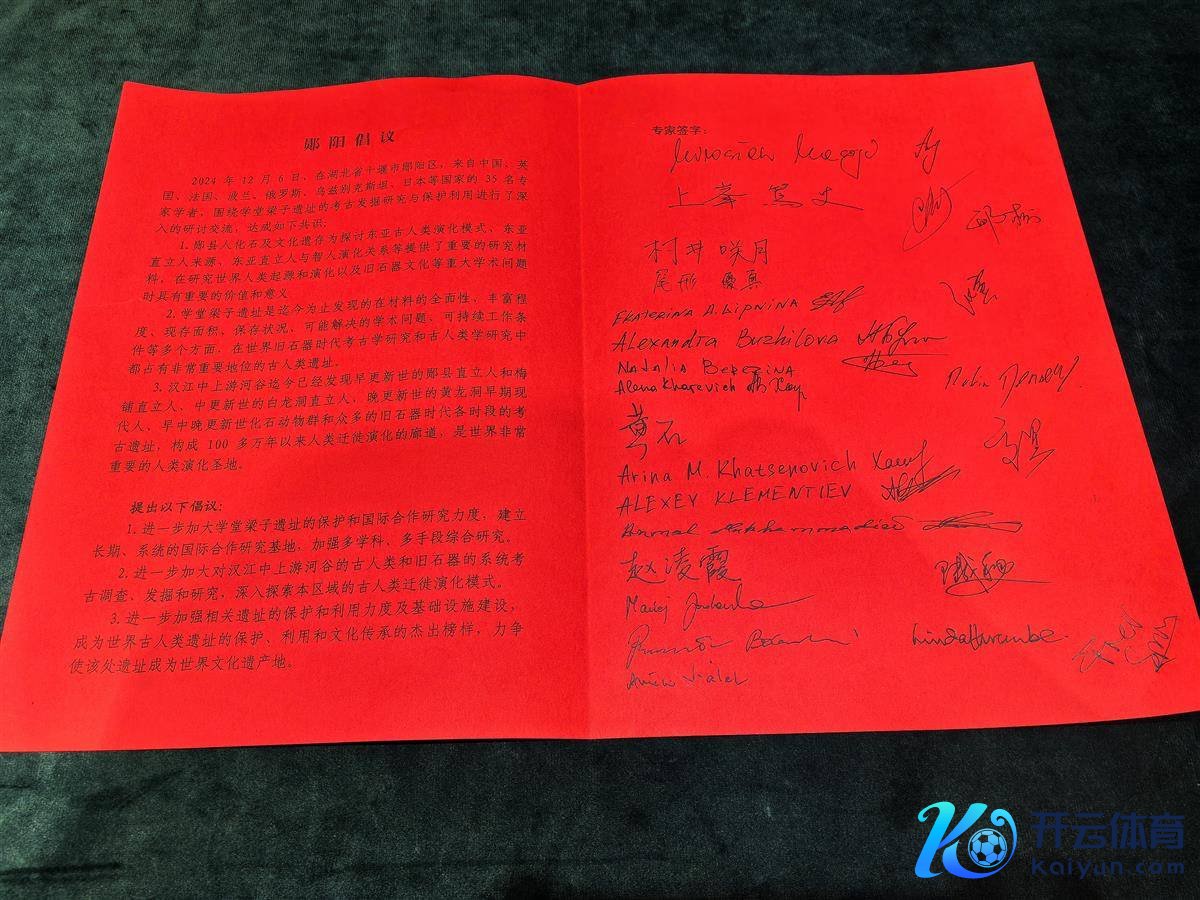 郧阳倡议
2024 年 12 月 6 日，在湖北省十堰市郧阳区，来自中国、英
国、法国、波兰、俄罗斯、乌兹别克斯坦、日本等国家的 35 名专
家学者，围绕学堂梁子遗址的考古发掘研究与保护利用进行了深
入的研讨交流，达成如下共识：
1. 郧县人化石及文化遗存为探讨东亚古人类演化模式、东亚
直立人来源、东亚直立人与智人演化关系等提供了重要的研究材
料，在研究世界人类起源和演化以及旧石器文化等重大学术问题
时具有重要的价值和意义
2. 学堂梁子遗址是迄今为止发现的在材料的全面性、丰富程
度、现存面积、保存状况、可能解决的学术问题、可持续工作条
件等多个方面，在世界旧石器时代考古学研究和古人类学研究中
都占有非常重要地位的古人类遗址。
3. 汉江中上游河谷迄今已经发现早更新世的郧县直立人和梅
铺直立人、中更新世的白龙洞直立人，晚更新世的黄龙洞早期现
代人、早中晚更新世化石动物群和众多的旧石器时代各时段的考
古遗址，构成 100 多万年以来人类迁徙演化的廊道，是世界非常
重要的人类演化圣地。
提出以下倡议：
1. 进一步加大学堂梁子遗址的保护和国际合作研究力度，建立
长期、系统的国际合作研究基地，加强多学科、多手段综合研究。
2. 进一步加大对汉江中上游河谷的古人类和旧石器的系统考
古调查、发掘和研究，深入探索本区域的古人类迁徙演化模式。
3. 进一步加强相关遗址的保护和利用力度及基础设施建设，
成为世界古人类遗址的保护、利用和文化传承的杰出榜样，力争
使该处遗址成为世界文化遗产地。
专家签字：
上峯 篤史
村井 咲月
尾形 優真
EKATERINA A. LIPNINA
Alexandra Buzhilova
NATALIA BEREZINA
Alena Kharevich
黄石
Arina M. Khatsenovich
ALEXEY KLEMENTIEV
赵凌霞
开云体育
Kaiyun.com